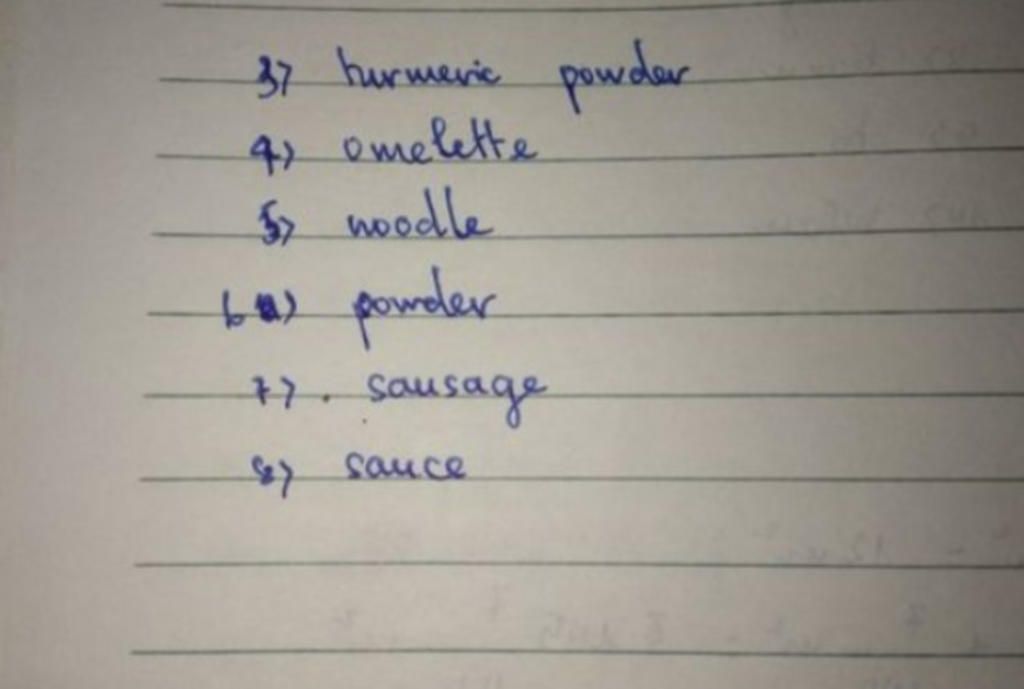 3) turmeric powder
4) omelette
5) noodle
6) powder
7) . sausage
8) sauce